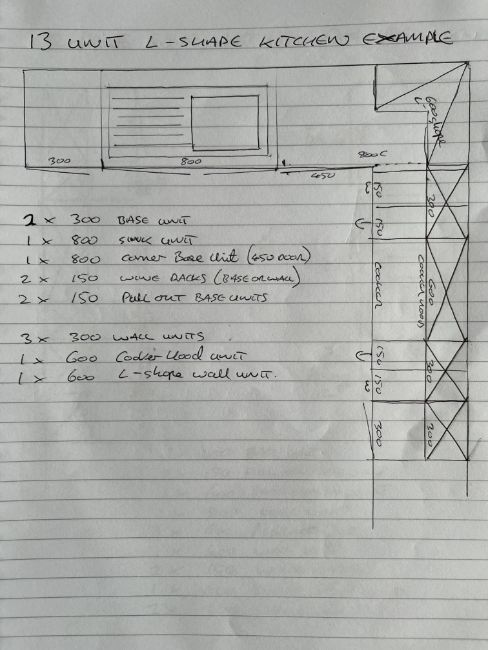 13 UNIT L-SHAPE KITCHEN EXAMPLE
600 L-shape
300
800
800C
450
150
W
300
150
C
COOKER
600
COOKERHOOD
C
150
300
W
150
300
300
2 x 300 BASE UNIT
1 x 800 SINK UNIT
1 x 800 Corner Base Unit (450 DOOR)
2 x 150 WINE RACKS (BASE OR WALL)
2 x 150 Pull OUT BASE UNITS
3 x 300 WALL UNITS
1 x 600 Cooker Hood UNIT
1 x 600 L-shape wall UNIT.